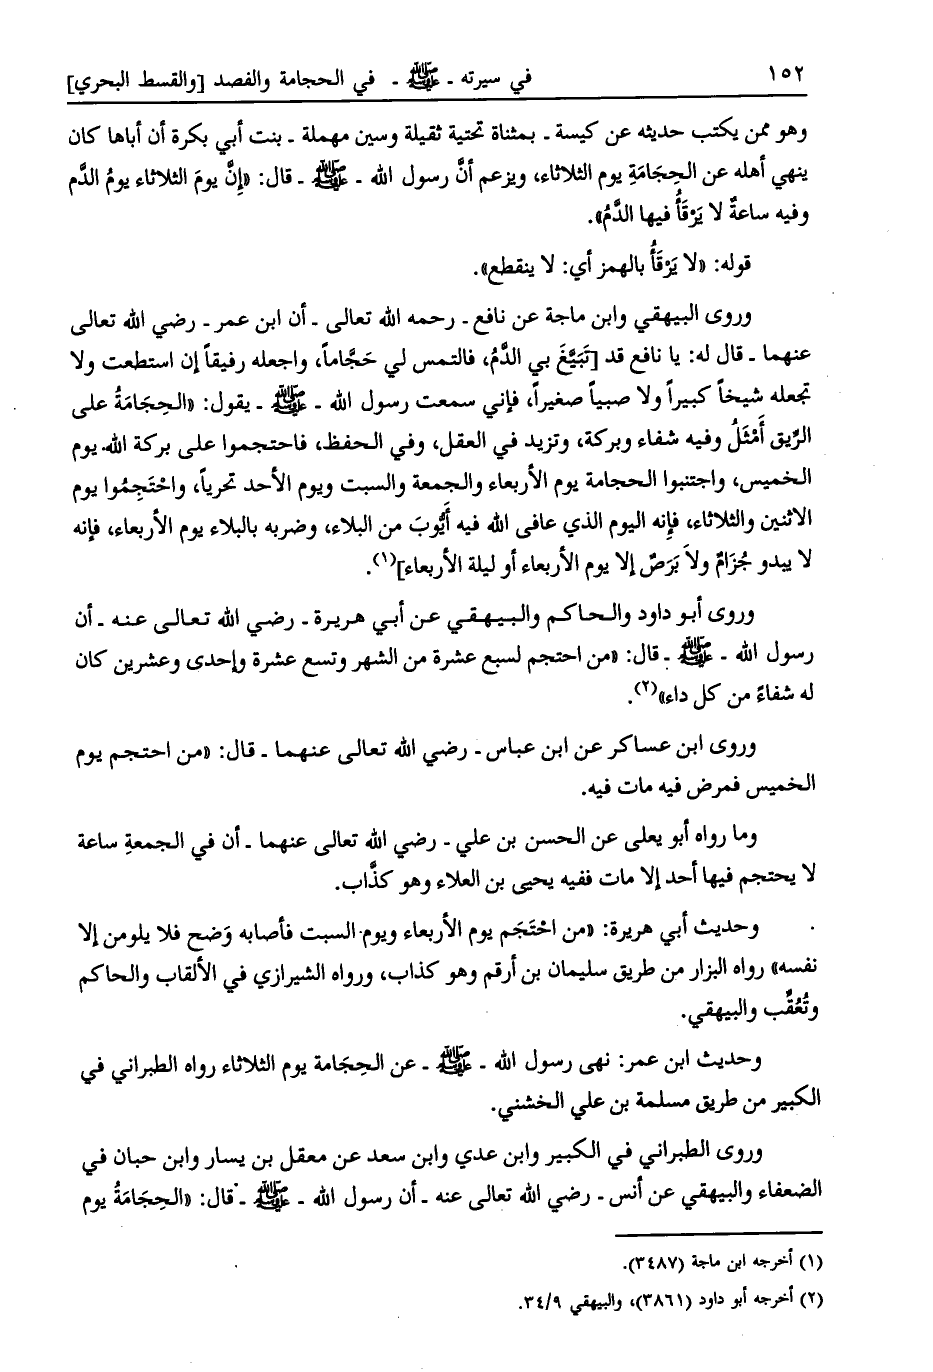 ١٥٢ في سيرته ـ ﷺ ـ في الحجامة والفصد [والقسط البحري]
وهو ممن يكتب حديثه عن كيسة ـ بمثناة تحتية ثقيلة وسين مهملة ـ بنت أبي بكرة أن أباها كان
ينهي أهله عن الحِجَامَةِ يوم الثلاثاء، ويزعم أنَّ رسول الله ـ ﷺ ـ قال: «إِنَّ يومَ الثلاثاء يومُ الدَّم
وفيه ساعةٌ لا يَرْقَأُ فيها الدَّمُ».
قوله: «لا يَرْقَأُ بالهمز أي: لا ينقطع».
وروى البيهقي وابن ماجة عن نافع ـ رحمه الله تعالى ـ أن ابن عمر ـ رضي الله تعالى
عنهما ـ قال له: يا نافع قد [تَبَيَّغَ بي الدَّمُ، فالتمس لي حَجَّاماً، واجعله رفيقاً إن استطعت ولا
تجعله شيخاً كبيراً ولا صبياً صغيراً، فإني سمعت رسول الله ـ ﷺ ـ يقول: «الحِجَامَةُ على
الرِّيق أَمْثَلُ وفيه شفاء وبركة، وتزيد في العقل، وفي الحفظ، فاحتجموا على بركة الله يوم
الخميس، واجتنبوا الحجامة يوم الأربعاء والجمعة والسبت ويوم الأحد تحرياً، واحْتَجِمُوا يوم
الاثنين والثلاثاء، فإنه اليوم الذي عافى الله فيه أَيُّوبَ من البلاء، وضربه بالبلاء يوم الأربعاء، فإنه
لا يبدو جُزَامٌ ولاَ بَرَصٌ إلا يوم الأربعاء أو ليلة الأربعاء](١).
وروى أبو داود والحاكم والبيهقي عن أبي هريرة ـ رضي الله تعالى عنه ـ أن
رسول الله ـ ﷺ ـ قال: «من احتجم لسبع عشرة من الشهر وتسع عشرة وإحدى وعشرين كان
له شفاءً من كل داء»(٢).
وروى ابن عساكر عن ابن عباس ـ رضي الله تعالى عنهما ـ قال: «من احتجم يوم
الخميس فمرض فيه مات فيه.
وما رواه أبو يعلى عن الحسن بن علي ـ رضي الله تعالى عنهما ـ أن في الجمعةِ ساعة
لا يحتجم فيها أحد إلا مات ففيه يحيى بن العلاء وهو كذَّاب.
وحديث أبي هريرة: «من احْتَجَم يوم الأربعاء ويوم السبت فأصابه وَضح فلا يلومن إلا
نفسه» رواه البزار من طريق سليمان بن أرقم وهو كذاب، ورواه الشيرازي في الألقاب والحاكم
وتُعُقِّب والبيهقي.
وحديث ابن عمر: نهى رسول الله ـ ﷺ ـ عن الحِجَامة يوم الثلاثاء رواه الطبراني في
الكبير من طريق مسلمة بن علي الخشني.
وروى الطبراني في الكبير وابن عدي وابن سعد عن معقل بن يسار وابن حبان في
الضعفاء والبيهقي عن أنس ـ رضي الله تعالى عنه ـ أن رسول الله ـ ﷺ ـ قال: «الحِجَامَةُ يوم
(١) أخرجه ابن ماجة (٣٤٨٧).
(٢) أخرجه أبو داود (٣٨٦١)، والبيهقي ٣٤/٩.